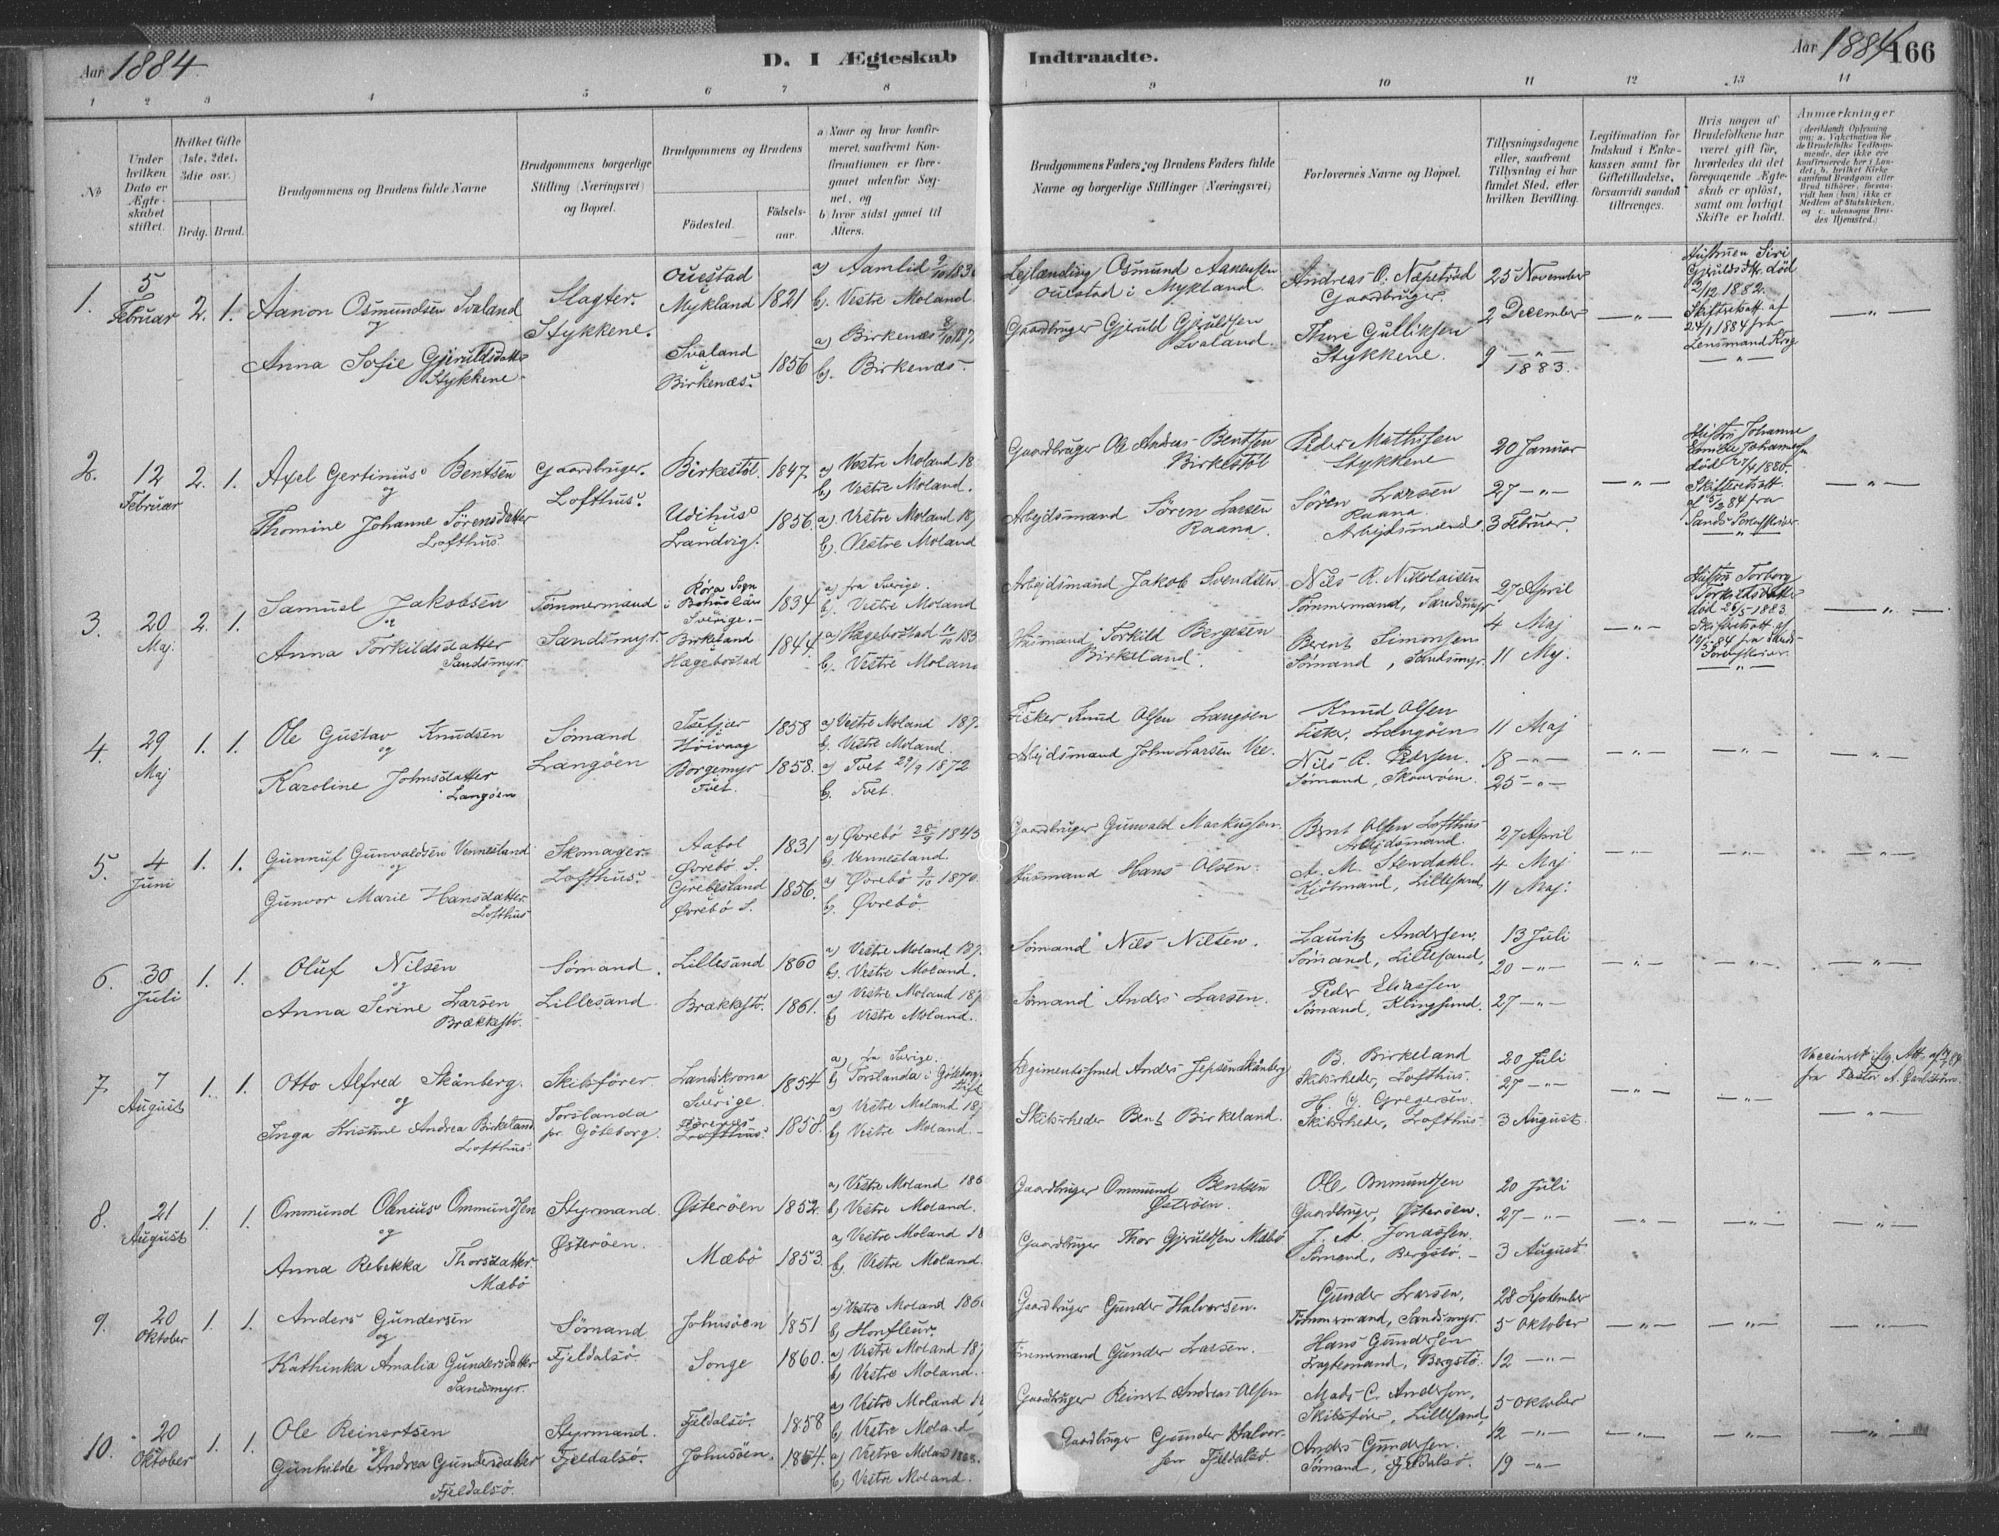 Aar 1884. D. I Ægteskab Indtraadte. Aar 1884 166
1 2 3 4 5 6 7 8 9 10 11 12 13 14
No
Under hvilken Dato er Ægteskabet stiftet.
Hvilket Gifte (1ste, 2det, 3die osv.)
Brdg. Brud.
Brudgommens og Brudens fulde Navne
Brudgommens borgerlige Stilling (Næringsvei) og Bopæl.
Brudgommens og Brudens
Fødested. Fødsels-aar.
a) Naar og hvor konfirmeret, saafremt Konfirmationen er foregaaet udenfor Sognet, og
b) hvor sidst gaaet til Alters.
Brudgommens Faders og Brudens Faders fulde Navne og borgerlige Stillinger (Næringsvei)
Forlovernes Navne og Bopæl.
Tillysningsdagene eller, saafremt Tillysning ei har fundet Sted, efter hvilken Bevilling.
Legitimation for Indskud i Enkekassen samt for Giftetilladelse, forsaavidt saadan tiltrænges.
Hvis nogen af Brudefolkene har været gift, hvorledes da det foregaaende Ægteskab er opløst, samt om lovligt Skifte er holdt.
Anmærkninger
1. 5 Februar 2. 1.
Aanon Osmundsen Svaland
og
Anna Sofie Gjeruldsdatter
Stykkene.
Slagter.
Stykkene.
Ouestad
Mykland 1821
Svaland
Birkenæs. 1856
a) Aamlid
b. Vestre Moland.
a) Birkenæs
b). Birkenæs.
Leilænding Osmund Aanensen
Ouestad i Mykland.
Gaardbruger Gjeruld Gjeruldsen
Svaland.
Andreas O. Næpetrød
Gaardbruger
Thore Gulliksen
Stykkene.
25 November
2 December
9 — " —
1883.
Hustruen Siri
Gjeruldsdtr. død
1882.
Skifteretsatt. af
24/1 1884 fra
Lensmand Krog
2. 12 Februar 2. 1.
Axel Gertinius Bentsen
og
Thomine Johanne Sørensdatter
Lofthus.
Gaardbruger.
Lofthus.
Birkestøl. 1847.
Udihus
Landvig. 1856.
a) Vestre Moland 18
b) Vestre Moland.
a) Vestre Moland 18
b) Vestre Moland
Gaardbruger Ole Andreas Bentsen
Birkestøl
Arbejdsmand Sören Larsen
Raana.
Peder Mathisen
Stykkene
Sören Larsen
Raana.
Arbejdsmand.
20 Januar
27 — " —
3 Februar.
Hustru Johanne
død 1880.
Skifteretsatt
af 5/2 84 fra
3. 20 Maj. 2. 1.
Samuel Jakobsen
og
Anna Torkildsdatter
Sandsmyr.
Tømmermand
Sandsmyr.
Röra Sogn
i Bohuslän
Sverige. 1834
Birkeland
Hægebostad 1844.
a) fra Sverige.
b. Vestre Moland
a) Hægebostad
b. Vestre Moland
Arbejdsmand Jakob Svendsen
Husmand Torkild Bergesen
Birkeland.
Nils R. Nikolaisen
Tømmermand, Sandsmyr
Berent Simonsen
Sømand, Sandsmyr.
27 April
4 Maj
11 Maj.
Hustru Torborg
Torkildsdatter
død 26/5 1883.
Skifteretsatt. af
4. 29 Maj 1. 1.
Ole Gustav Knudsen
og
Karoline Johnsdatter
Langøen
Sømand
Langöen
Høivaag 1858
Borgemyr
Tvet. 1858.
a) Vestre Moland 187
b. Vestre Moland.
a) Tvet 29/9 1872
b. Tvet.
Fisker Knud Olsen Langøen
Arbejdsmand John Larsen Vee
Knud Olsen
Fisker, Langøen
Nils R. Pedersen.
Sømand, Skaurøen.
11 Maj
18 — " —
25 — " —
5. 4 Juni 1. 1.
Gunnuf Gunvaldsen Vennesland
og
Gunvor Marie Hansdatter
Lofthus
Skomager.
Lofthus.
Øvrebø S. 1831
Øvrebø S. 1856.
a) Øvrebö 1843
b. Vennesland.
a) Øvrebö 1870
b. Øvrebö.
Gaardbruger Gunvald Markussen.
Husmand Hans Olsen.
Bent Olsen Lofthus
Arbejdsmand.
A. M. Stendahl.
Kjøbmand, Lillesand,
27 April
4 Maj
11 Maj.
6. 30 Juli 1. 1.
Oluf Nilsen
og
Anna Serine Larsen
Brækkestø.
Sømand.
Lillesand.
Lillesand 1860
Brækkestø. 1861.
a) Vestre Moland 187
b). Vestre Moland.
a) Vestre Moland 187
b) Vestre Moland.
Sømand Nils Nilsen.
Sømand Anders Larsen.
Lauritz Andersen,
Sømand, Lillesand,
Peder Eliassen
Sømand, Klingsund.
13 Juli
20 — " —
27 — " —
7. 7 August 1. 1.
Otto Alfred Skånberg.
og
Inga Kristine Andrea Birkeland
Lofthus.
Skibsfører.
Torslanda
pr. Göteborg.
Landskrona
Sverige. 1854
Lofthus. 1858.
a) fra Sverige.
b) Torslanda i Göteborgs Stift
a) Vestre Moland 187
b) Vestre Moland.
Regimentssmed Anders Jepsen Skånberg
Skibsrheder Bent Birkeland.
B. Birkeland
Skibsrheder, Lofthus.
H. G. Gregersen.
Skibsrheder, Lofthus
20 Juli
27 — " —
3 August.
fra Pastor A. Carlström.
8. 21 August 1. 1.
Ommund Olenius Ommundsen
og
Anna Rebekka Thorsdatter
Mæbø
Styrmand.
Østerøen.
Østerøen 1852.
Mæbö 1853.
a) Vestre Moland 186
b) Vestre Moland.
a) Vestre Moland 18
b). Vestre Moland.
Gaardbruger Ommund Bentsen
Østrøen.
Gaardbruger Thor Gjeruldsen Mæbø
Ole Ommundsen
Gaardbruger, Østerøen.
J. A. Jonassen.
Sømand, Bergstø.
20 Juli
27 — " —
3 August
9. 20 Oktober 1. 1.
Anders Gundersen
og
Kathinka Amalia Gundersdatter
Sandsmyr.
Sømand
Fjeldalsø
Johnsøen 1851
Songe 1860.
a) Vestre Moland 186
b) Honfleur.
a) Vestre Moland 187
b) Vestre Moland.
Gaardbruger Gunder Halvorsen.
Tømmermand Gunder Larsen.
Gunder Larsen,
Tømmermand, Sandsmyr.
Hans Gundersen
Fragtemand, Bergstø.
28 September
5 Oktober
12 — " —
10. 20 Oktober 1. 1.
Ole Reinertsen
og
Gunhilde Andrea Gundersdatter
Fjeldalsø.
Styrmand.
Fjeldalsø.
Fjeldalsø. 1858
Johnsøen. 1864.
a) Vestre Moland 18
b) Vestre Moland.
a) Vestre Moland
b) Vestre Moland.
Gaardbruger Reinert Andreas Olsen
Gaardbruger Gunder Halvorsen Fjeldalsø.
Mads C. Andersen,
Skibsfører, Lillesand
Anders Gundersen.
Sømand, Fjeldalsø.
5 Oktober
12 — " —
19 — " —